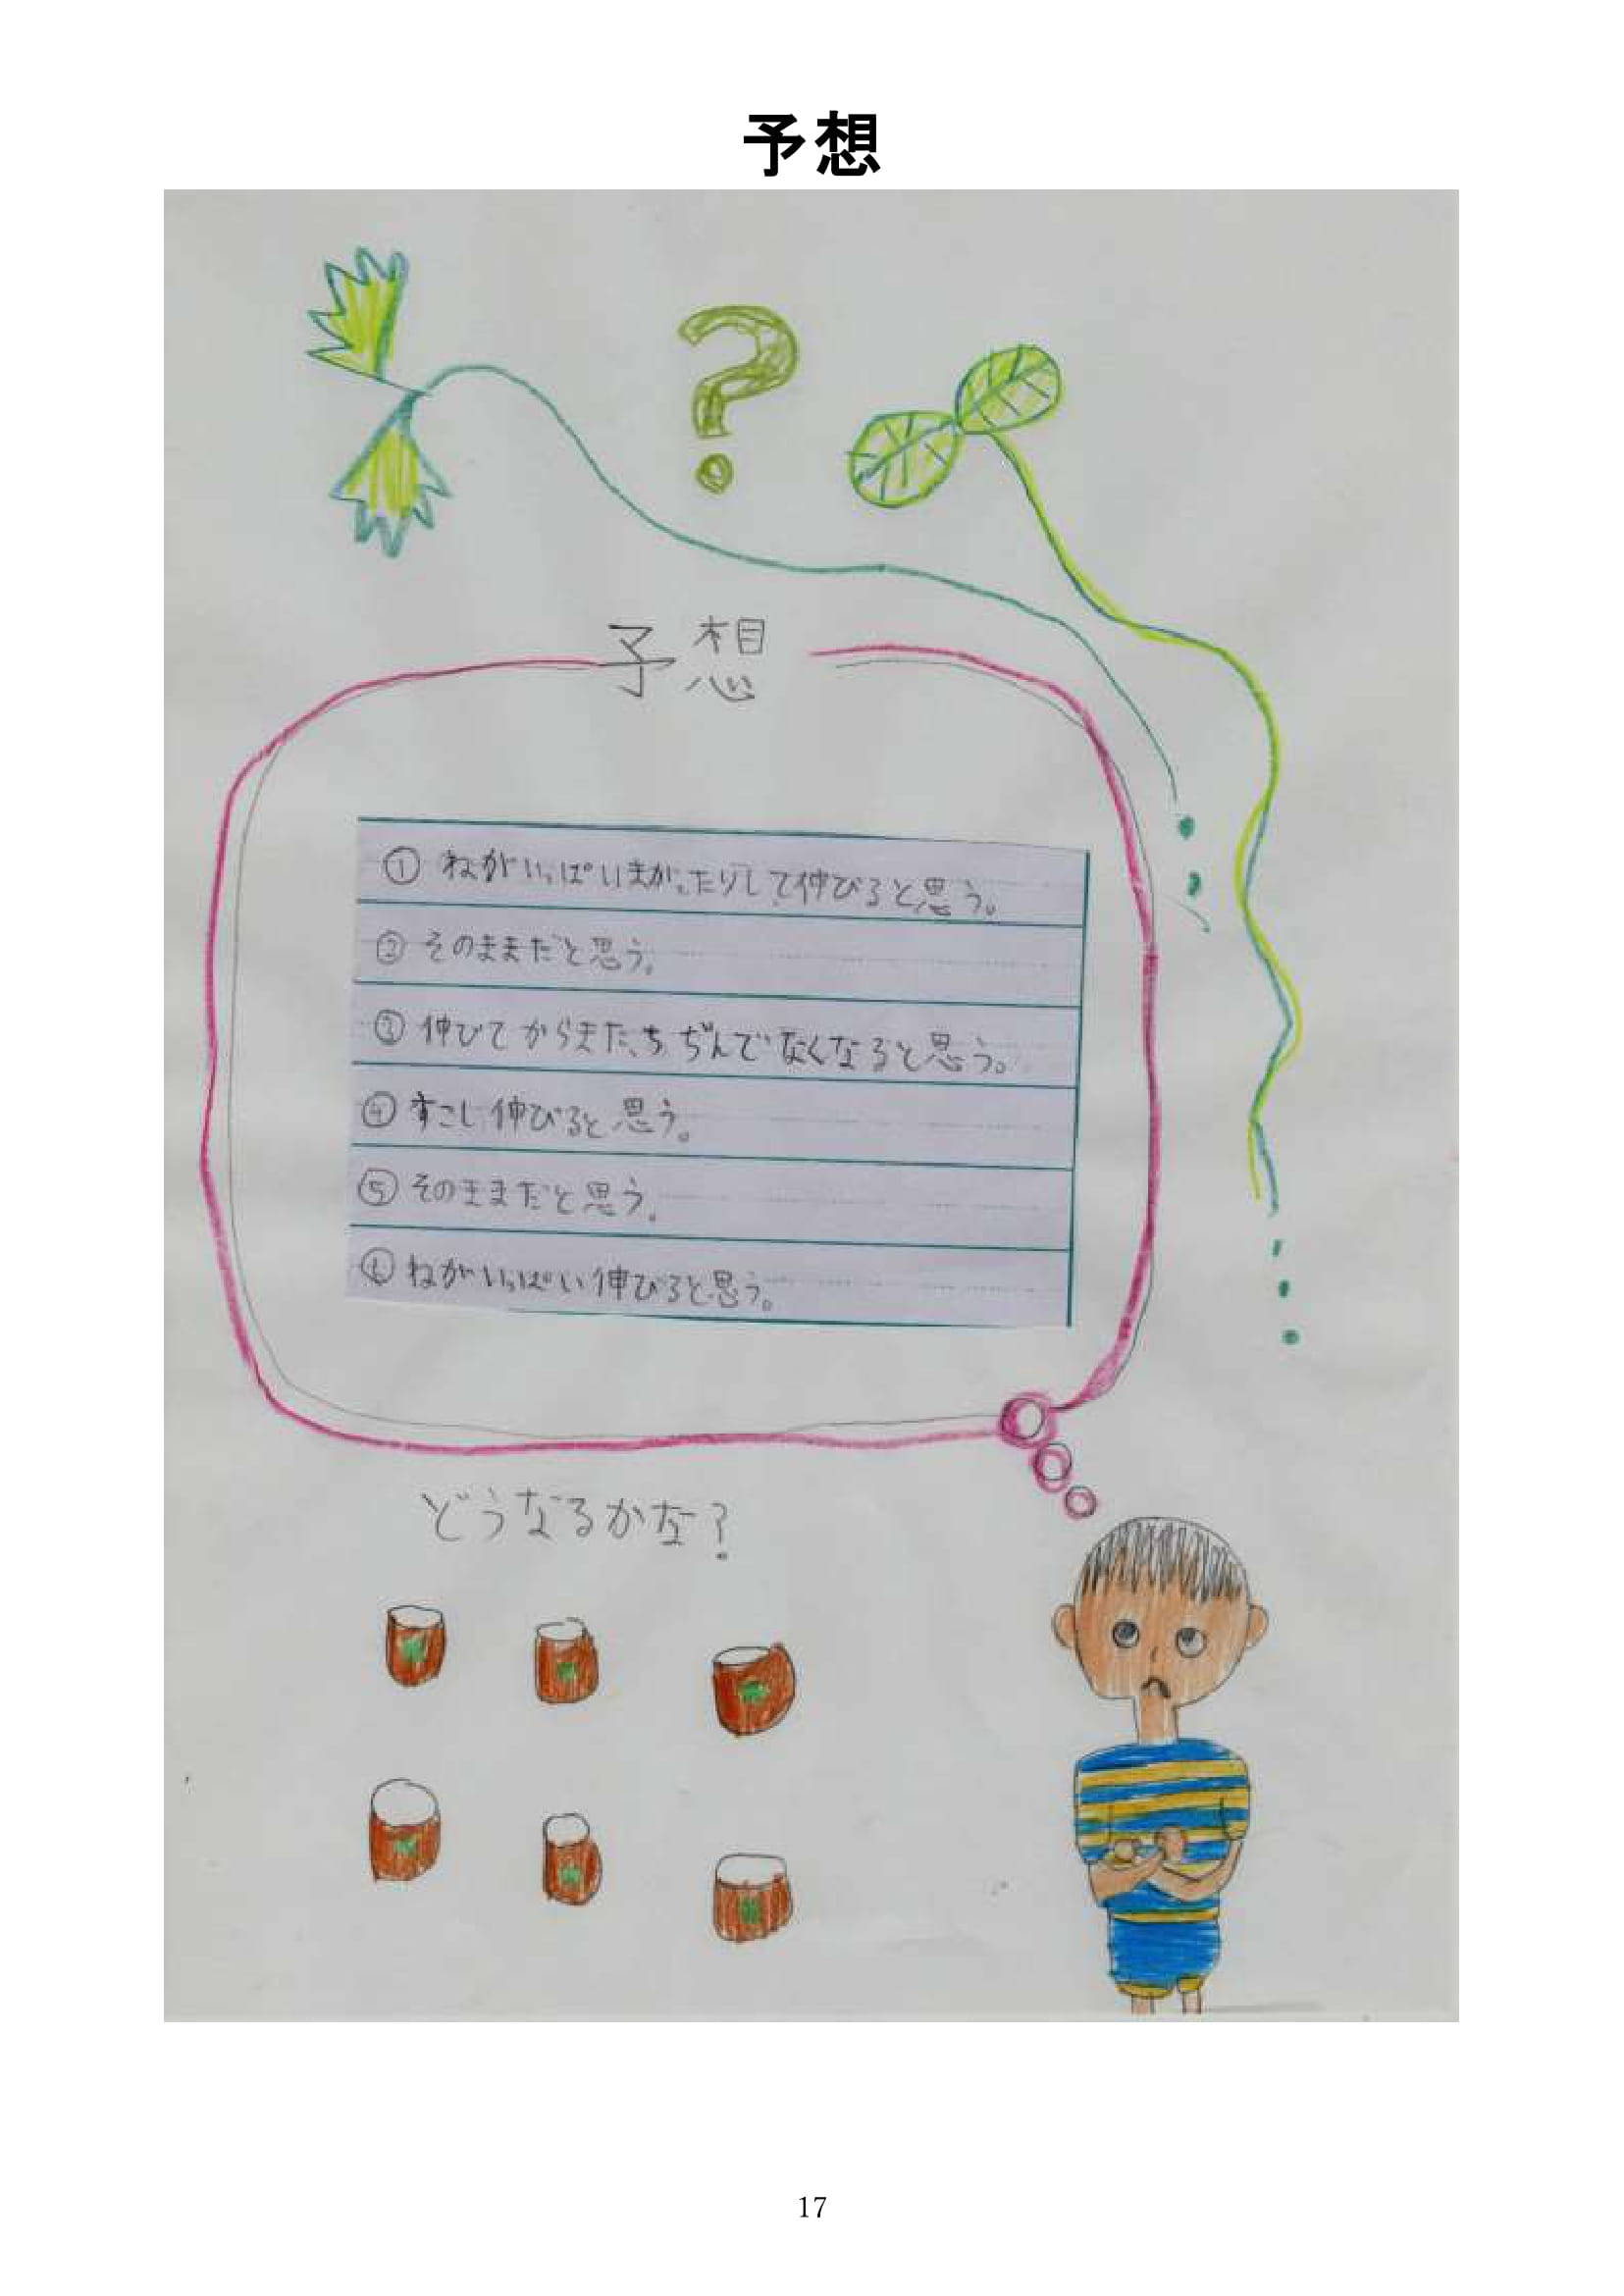 予想
?
予想
① ねがいっぱいまがったりして伸びると思う。
② そのままだと思う。
③ 伸びてからまた、ちぢんでなくなると思う。
④ すこし伸びると思う。
⑤ そのままだと思う。
⑥ ねがいっぱい伸びると思う。
どうなるかな?
17